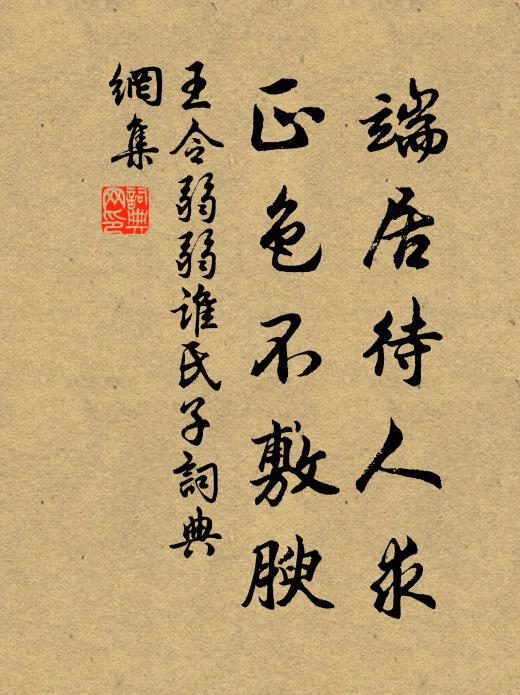 端居待人求
正色不敷腴
王令弱弱谁氏子詞典
網集
詞典網印